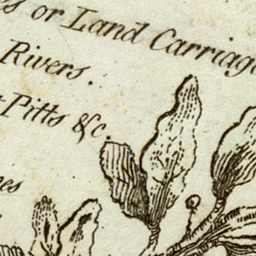 or Land Carriag
Rivers.
Pitts &c.